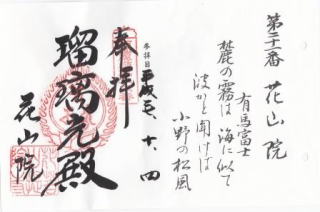 第二十一番 花山院
有馬富士
麓の霧は 海に似て
波かと聞けば
小野の松風
参拝日 平成 五、十、四
奉拝
瑠璃光殿
花山院